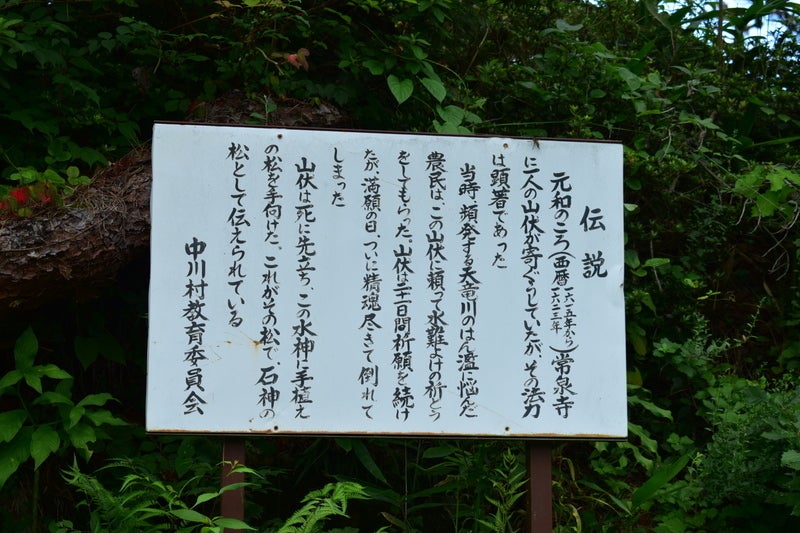 伝説
元和のころ(西暦一六一五年から一六二三年)常泉寺
に一人の山伏が寄ぐうしていたが、その法力
は顕著であった
当時、頻発する天竜川のはん濫に悩んだ
農民は、この山伏に頼って水難よけの祈とう
をしてもらった。山伏は二十一日間祈願を続け
たが、満願の日、ついに精魂尽きて倒れて
しまった
山伏は死に先立ち、この水神に手植え
の松を手向けた。これがその松で、石神の
松として伝えられている
中川村教育委員会